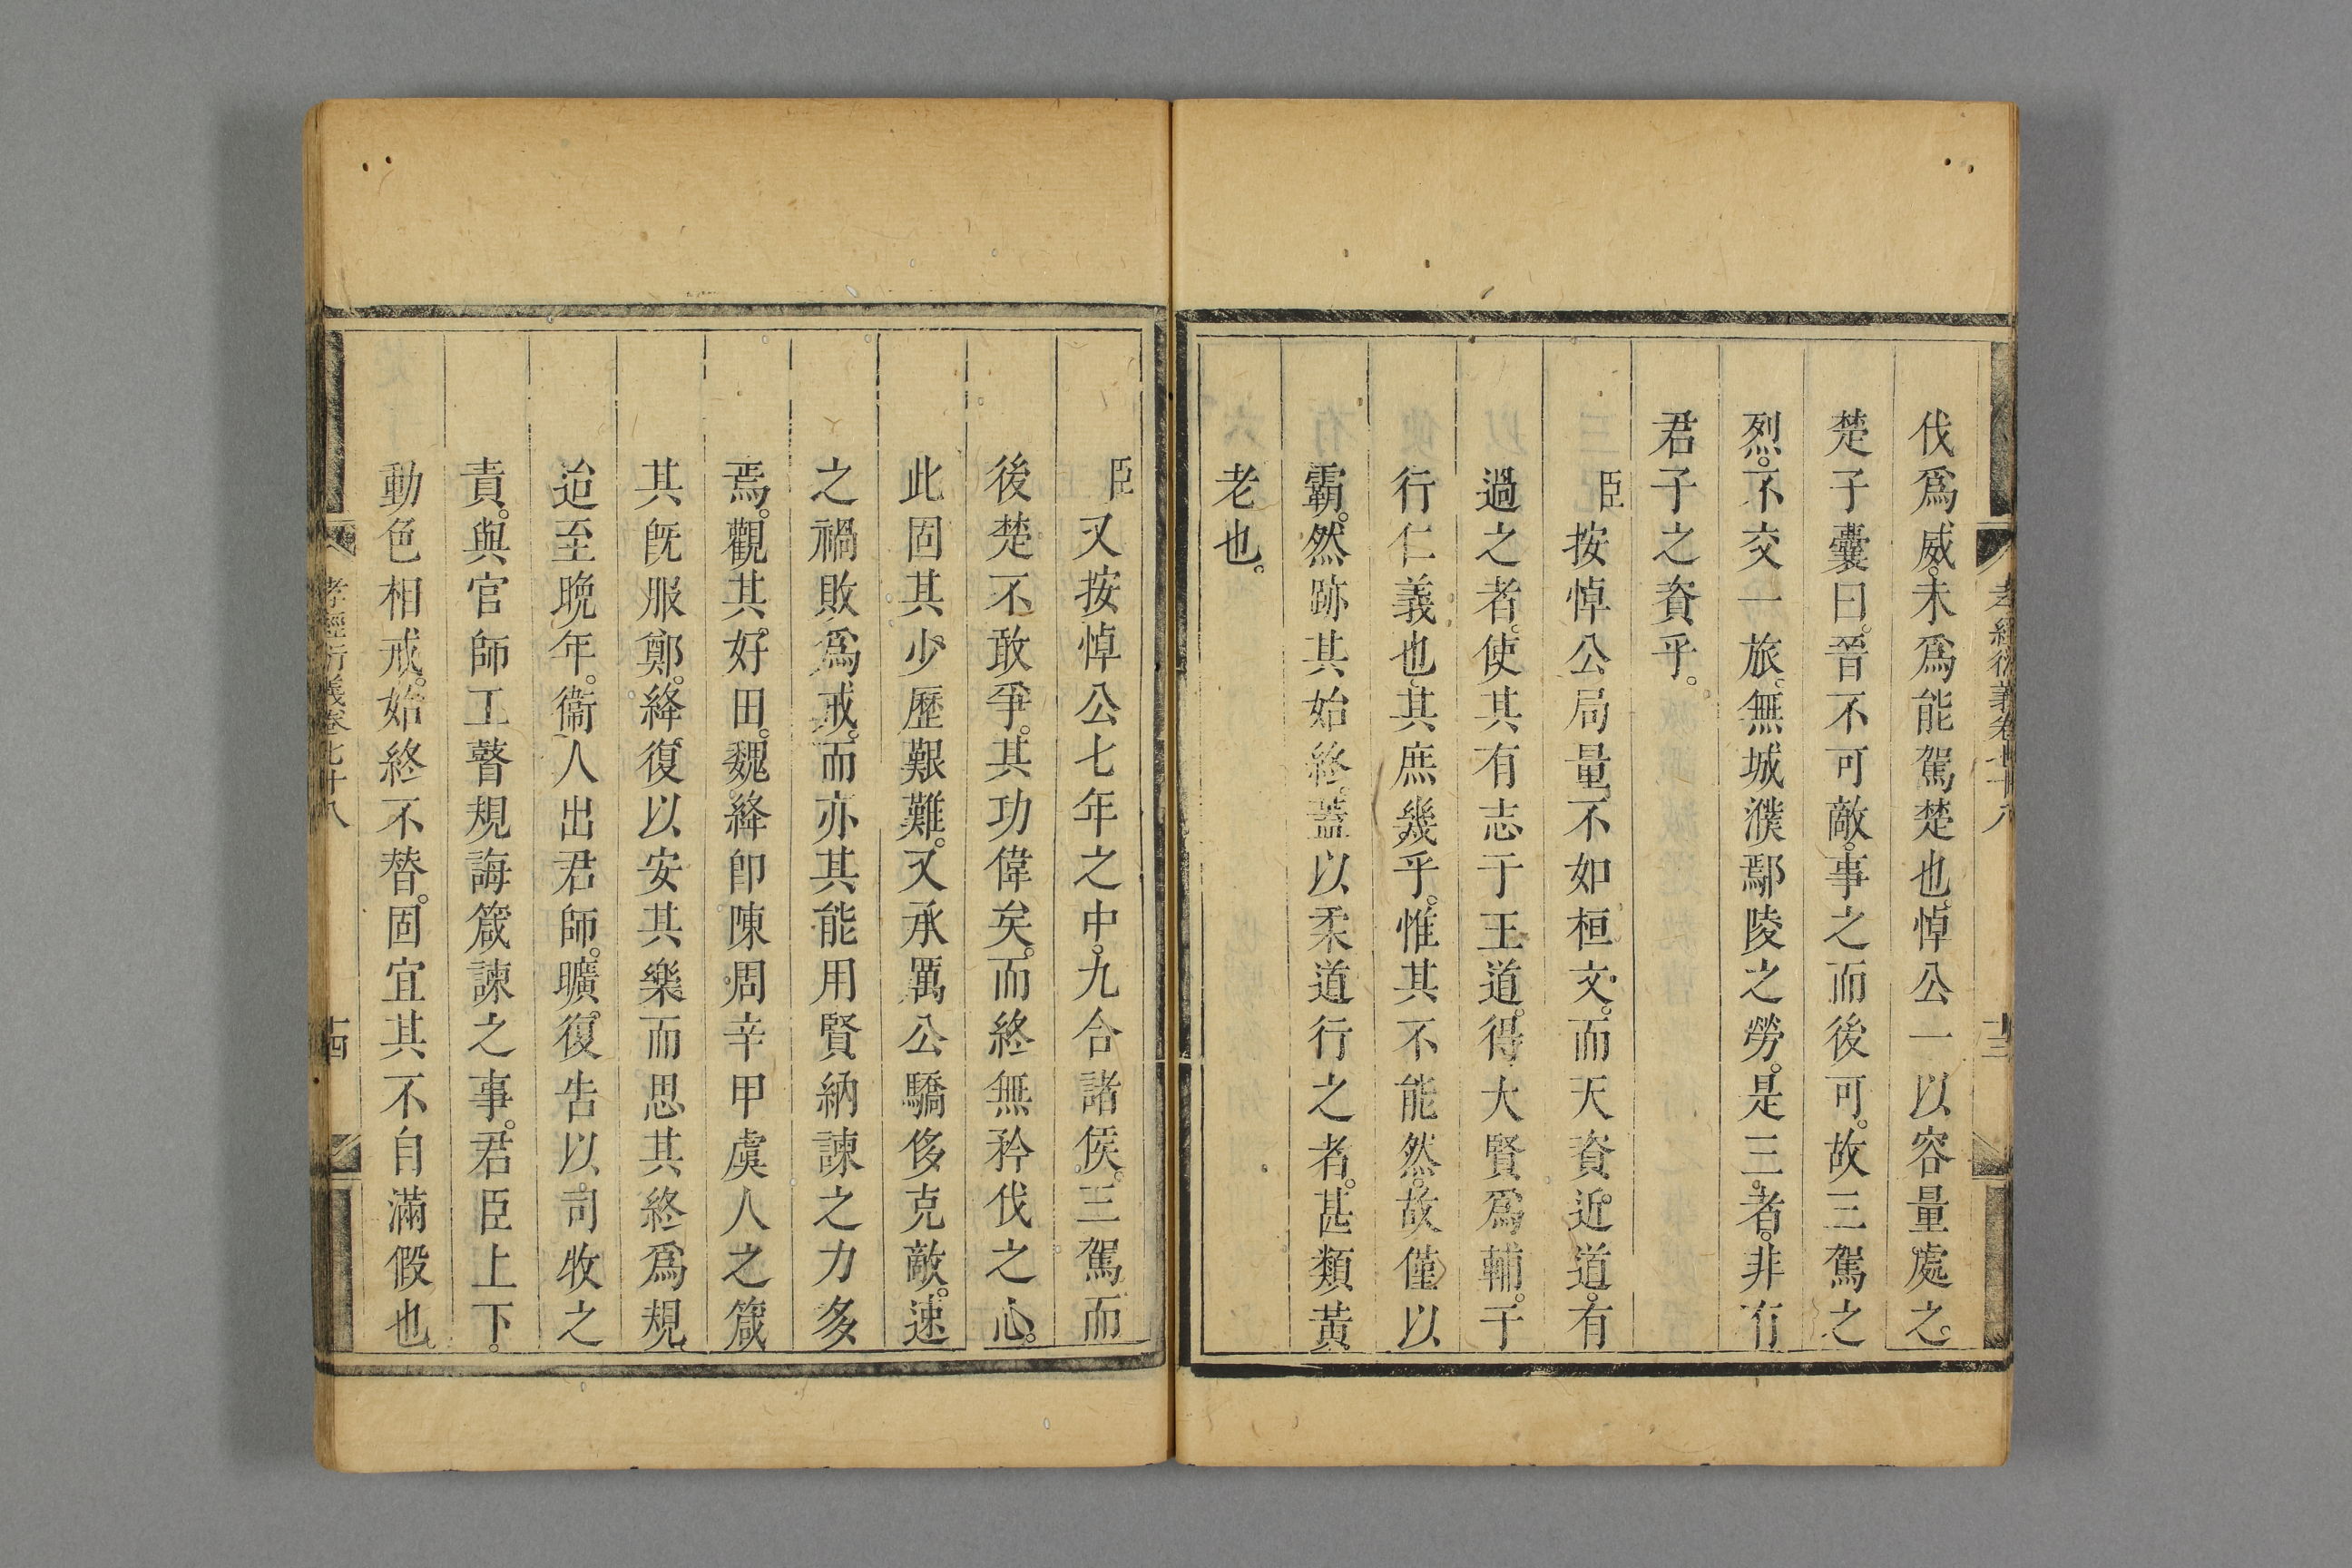 孝經衍義卷七十八
十三
伐爲威。未爲能駕楚也。悼公一以容量處之。
楚子囊曰。晉不可敵。事之而後可。故三駕之
烈。不交一旅。無城濮鄢陵之勞。是三者。非有
君子之資乎。
臣按悼公局量。不如桓文。而天資近道。有
過之者。使其有志于王道。得大賢爲輔。于
行仁義也。其庶幾乎。惟其不能然。故僅以
霸。然跡其始終。蓋以柔道行之者。甚類黃
老也。
臣又按悼公七年之中。九合諸侯。三駕而
後楚不敢爭。其功偉矣。而終無矜伐之心。
此固其少歷艱難。又承厲公驕侈克敵。速
之禍敗爲戒。而亦其能用賢納諫之力多
焉。觀其好田。魏絳卽陳周辛甲虞人之箴
其旣服鄭。絳復以安其樂而思其終爲規
迨至晚年。衞人出君。師曠復告以司牧之
責。與官師工瞽規誨箴諫之事。君臣上下。
動色相戒。始終不替。固宜其不自滿假也
孝經衍義卷七十八
十四